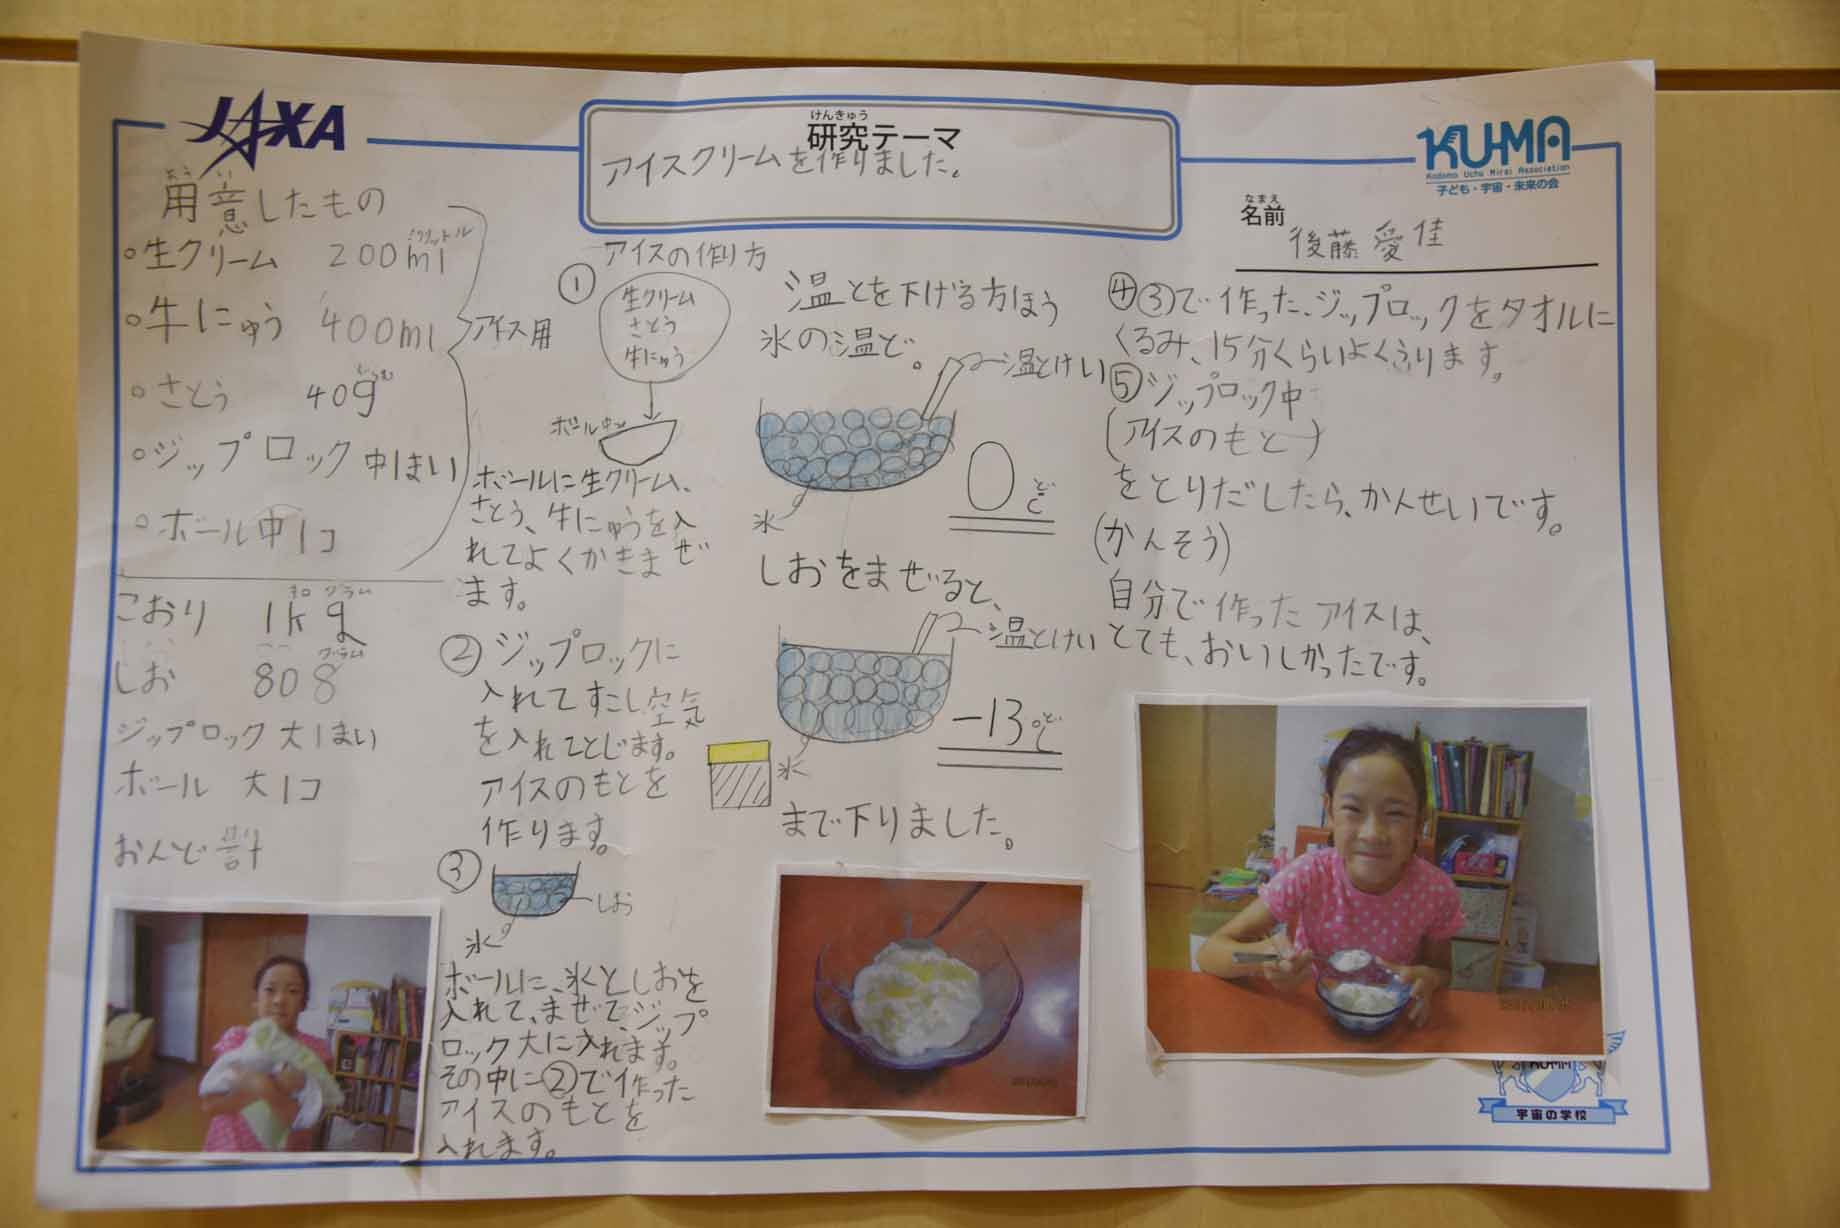 JAXA
けんきゅう
研究テーマ
アイスクリームを作りました。
KU-MA
Kodomo Uchu Mirai Association
子ども・宇宙・未来の会
なまえ
名前
後藤 愛佳
よう い
用意したもの
生クリーム 200ml
ミリリットル
牛にゅう 400ml
さとう 40g
ぐらむ
ジップロック 中1まい
ボール中1コ
アイス用
こおり 1kg
キロ グラム
しお 80g
グラム
ジップロック 大1まい
ボール 大1コ
おんど計
けい
アイスの作り方
①
生クリーム
さとう
牛にゅう
ボール中
ボールに生クリーム、
さとう、牛にゅうを入
れてよくかきまぜ
ます。
② ジップロックに
入れてすこし空気
を入れてとじます。
アイスのもとを
作ります。
③
しお
氷
ボールに、氷としおを
入れて、まぜて、ジップ
ロック大に入れます。
その中に②で作った
アイスのもとを
入れます。
温どを下げる方ほう
氷の温ど。
温どけい
氷
0ど
しおをまぜると、
温どけい
-13ど
氷
まで下りました。
④③で作った、ジップロックをタオルに
くるみ、15分くらいよくふります。
⑤ジップロック中
(アイスのもと)
をとりだしたら、かんせいです。
(かんそう)
自分で作ったアイスは、
とても、おいしかったです。
KU-MA
宇宙の学校